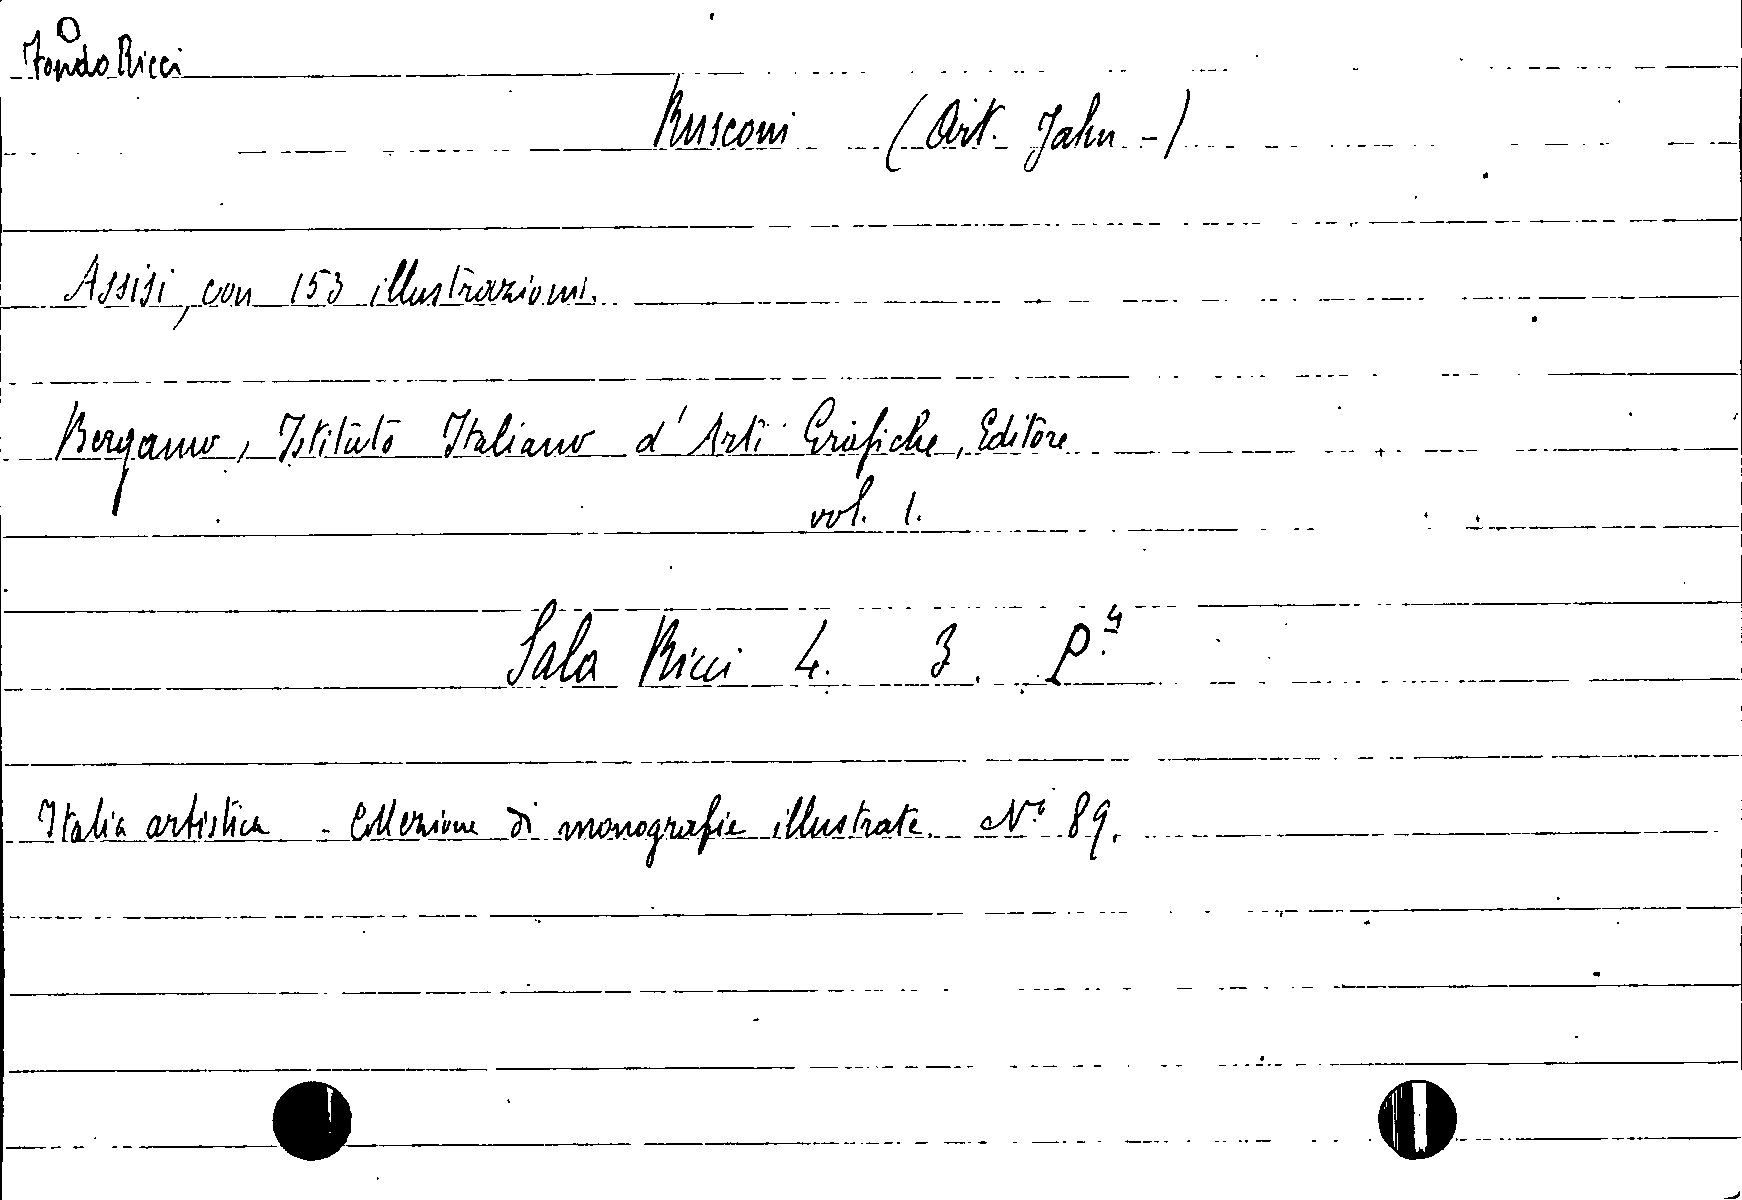 Fondo Ricci
Rusconi (Art. Jahn -)
Assisi, con 153 illustrazioni.
Bergamo, Istituto Italiano d'Arti Grafiche, Editore
vol. 1.
Sala Ricci 4. 3. P.4
Italia artistica - Collezione di monografie illustrate. N. 89.